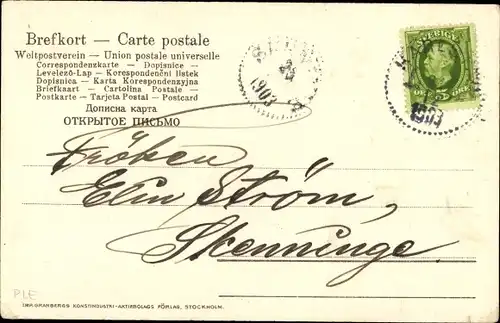 Brefkort — Carte postale
Weltpostverein — Union postale universelle
Correspondenzkarte — Dopisnice —
Levelező-Lap — Korespondenční listek
Dopisnica — Karta Korespondenzyjna
Briefkaart — Cartolina Postale —
Postkarte — Tarjeta Postal — Postcard
Дописна карта
ОТКРЫТОЕ ПИСЬМО
1903
SVERIGE
5
ÖRE
ÖRE
1903
Fröken
Elin Ström,
Skenninge.
PLE
IMP. GRANBERGS KONSTINDUSTRI-AKTIEBOLAGS FÖRLAG, STOCKHOLM.